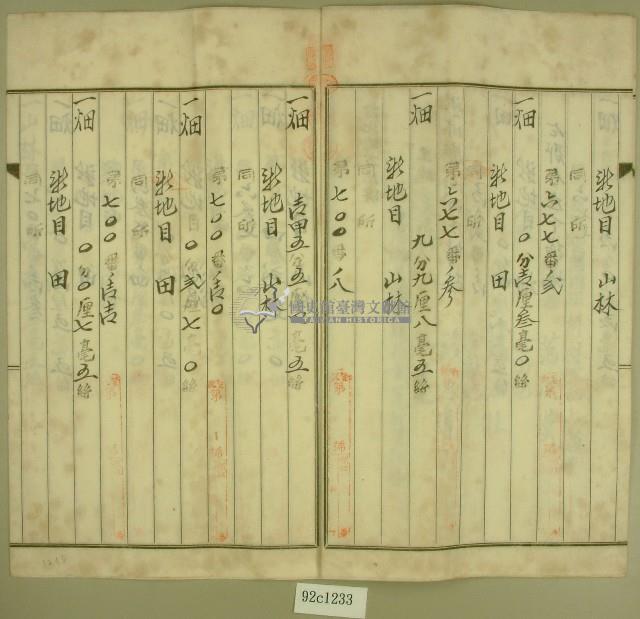 新地目 山林
同 所
第六七七番ノ弐
一畑 〇分壱厘参毫〇絲
新地目 田
同 所
第六七七番ノ参
一畑 九分九厘八毫五絲
新地目 山林
同 所
第七〇〇番ノ八
一畑 壱甲五分五厘 毫五絲
新地目 山林
同 所
第七〇〇番ノ壱〇
一畑 〇分弐厘七毫〇絲
新地目 田
同 所
第七〇〇番ノ壱壱
一畑 〇分〇厘七毫五絲
新地目 田
同 所
國史館臺灣文獻館
TAIWAN HISTORICA
92c1233